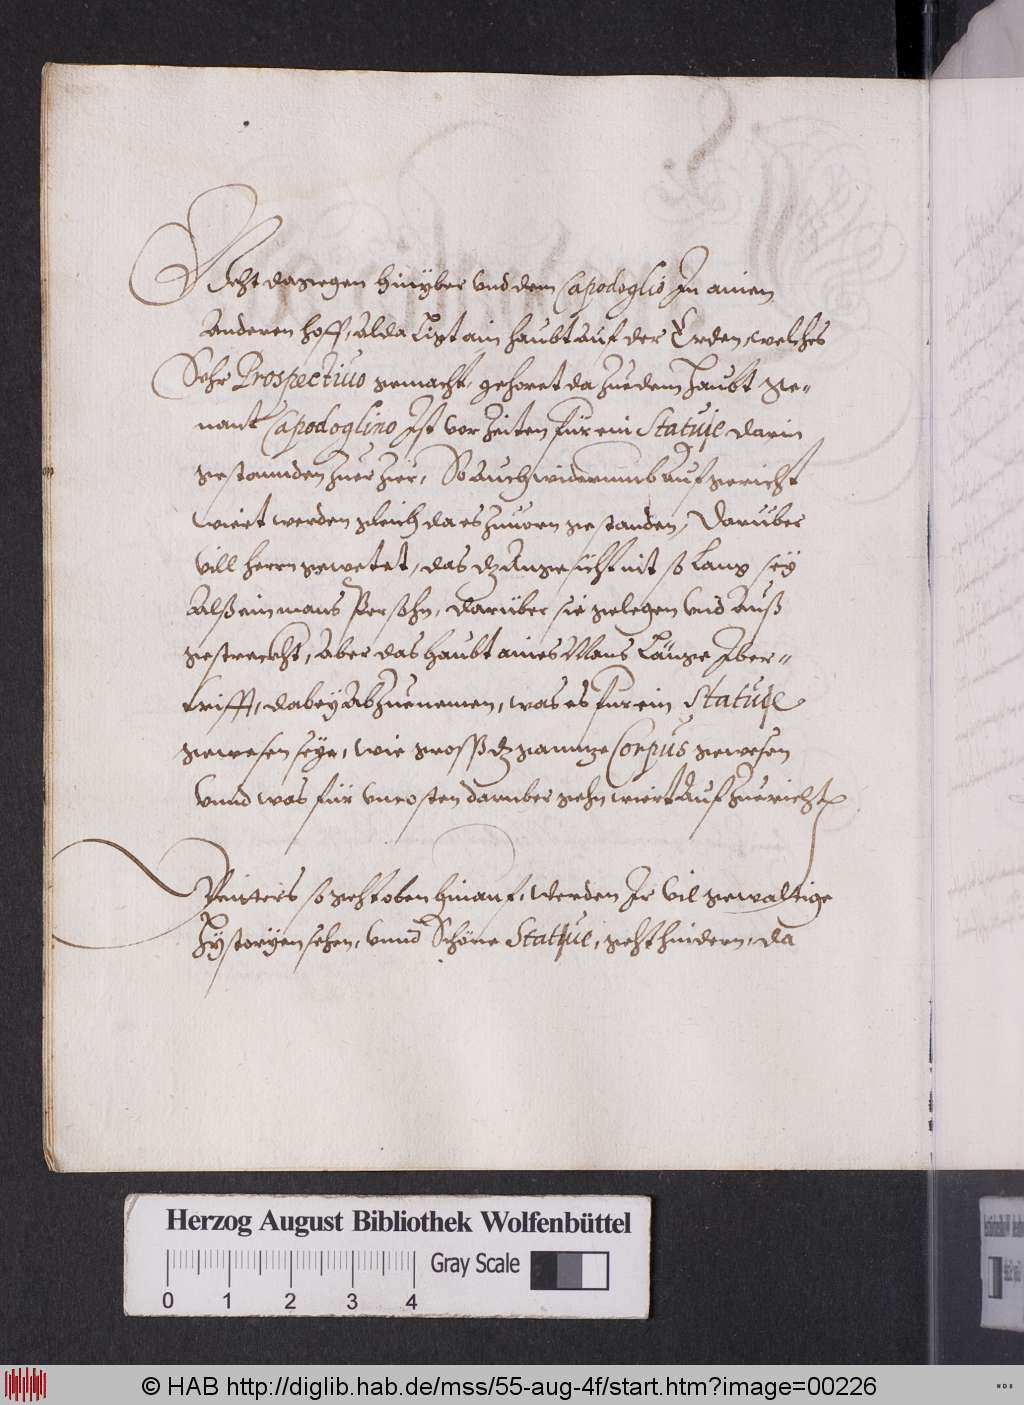 Geht dargegen hinyber vnd dem Capodoglio In ainen
Anderen hoff, Alda Ligt ain haubt auf der Erden, welches
Sehr Prospectiuo gemacht, gehoret da zue dem Haubt ge„
nant Capodoglino Ist vor Zeiten für ein Statuje darin
gestannden zuer Zier, So auch widerumb auf gericht
wiert werden gleich da es zuuorn gestanden, Darüber
vill herrn gewetet, das dz Angesicht nit so Lang sey
Alß ein mans Persohn, darüber sie gelegen vnd Auß
gestreckht, Aber das haubt aines Mans Länge Iber„
trifft, dabey Abzuenemen, was es für ein Statuje
gewesen seye, wie gross dz gannze Corpus gewesen
Vnnd was für vncosten darüber gehn wiert Auf Zuericht
Weitters so geht oben hinauf, werden Ir vil gewaltige
Hystoryen sehen, vnnd Schöne Statue, geht hindern, da
Herzog August Bibliothek Wolfenbüttel
Gray Scale
0 1 2 3 4
© HAB http://diglib.hab.de/mss/55-aug-4f/start.htm?image=00226